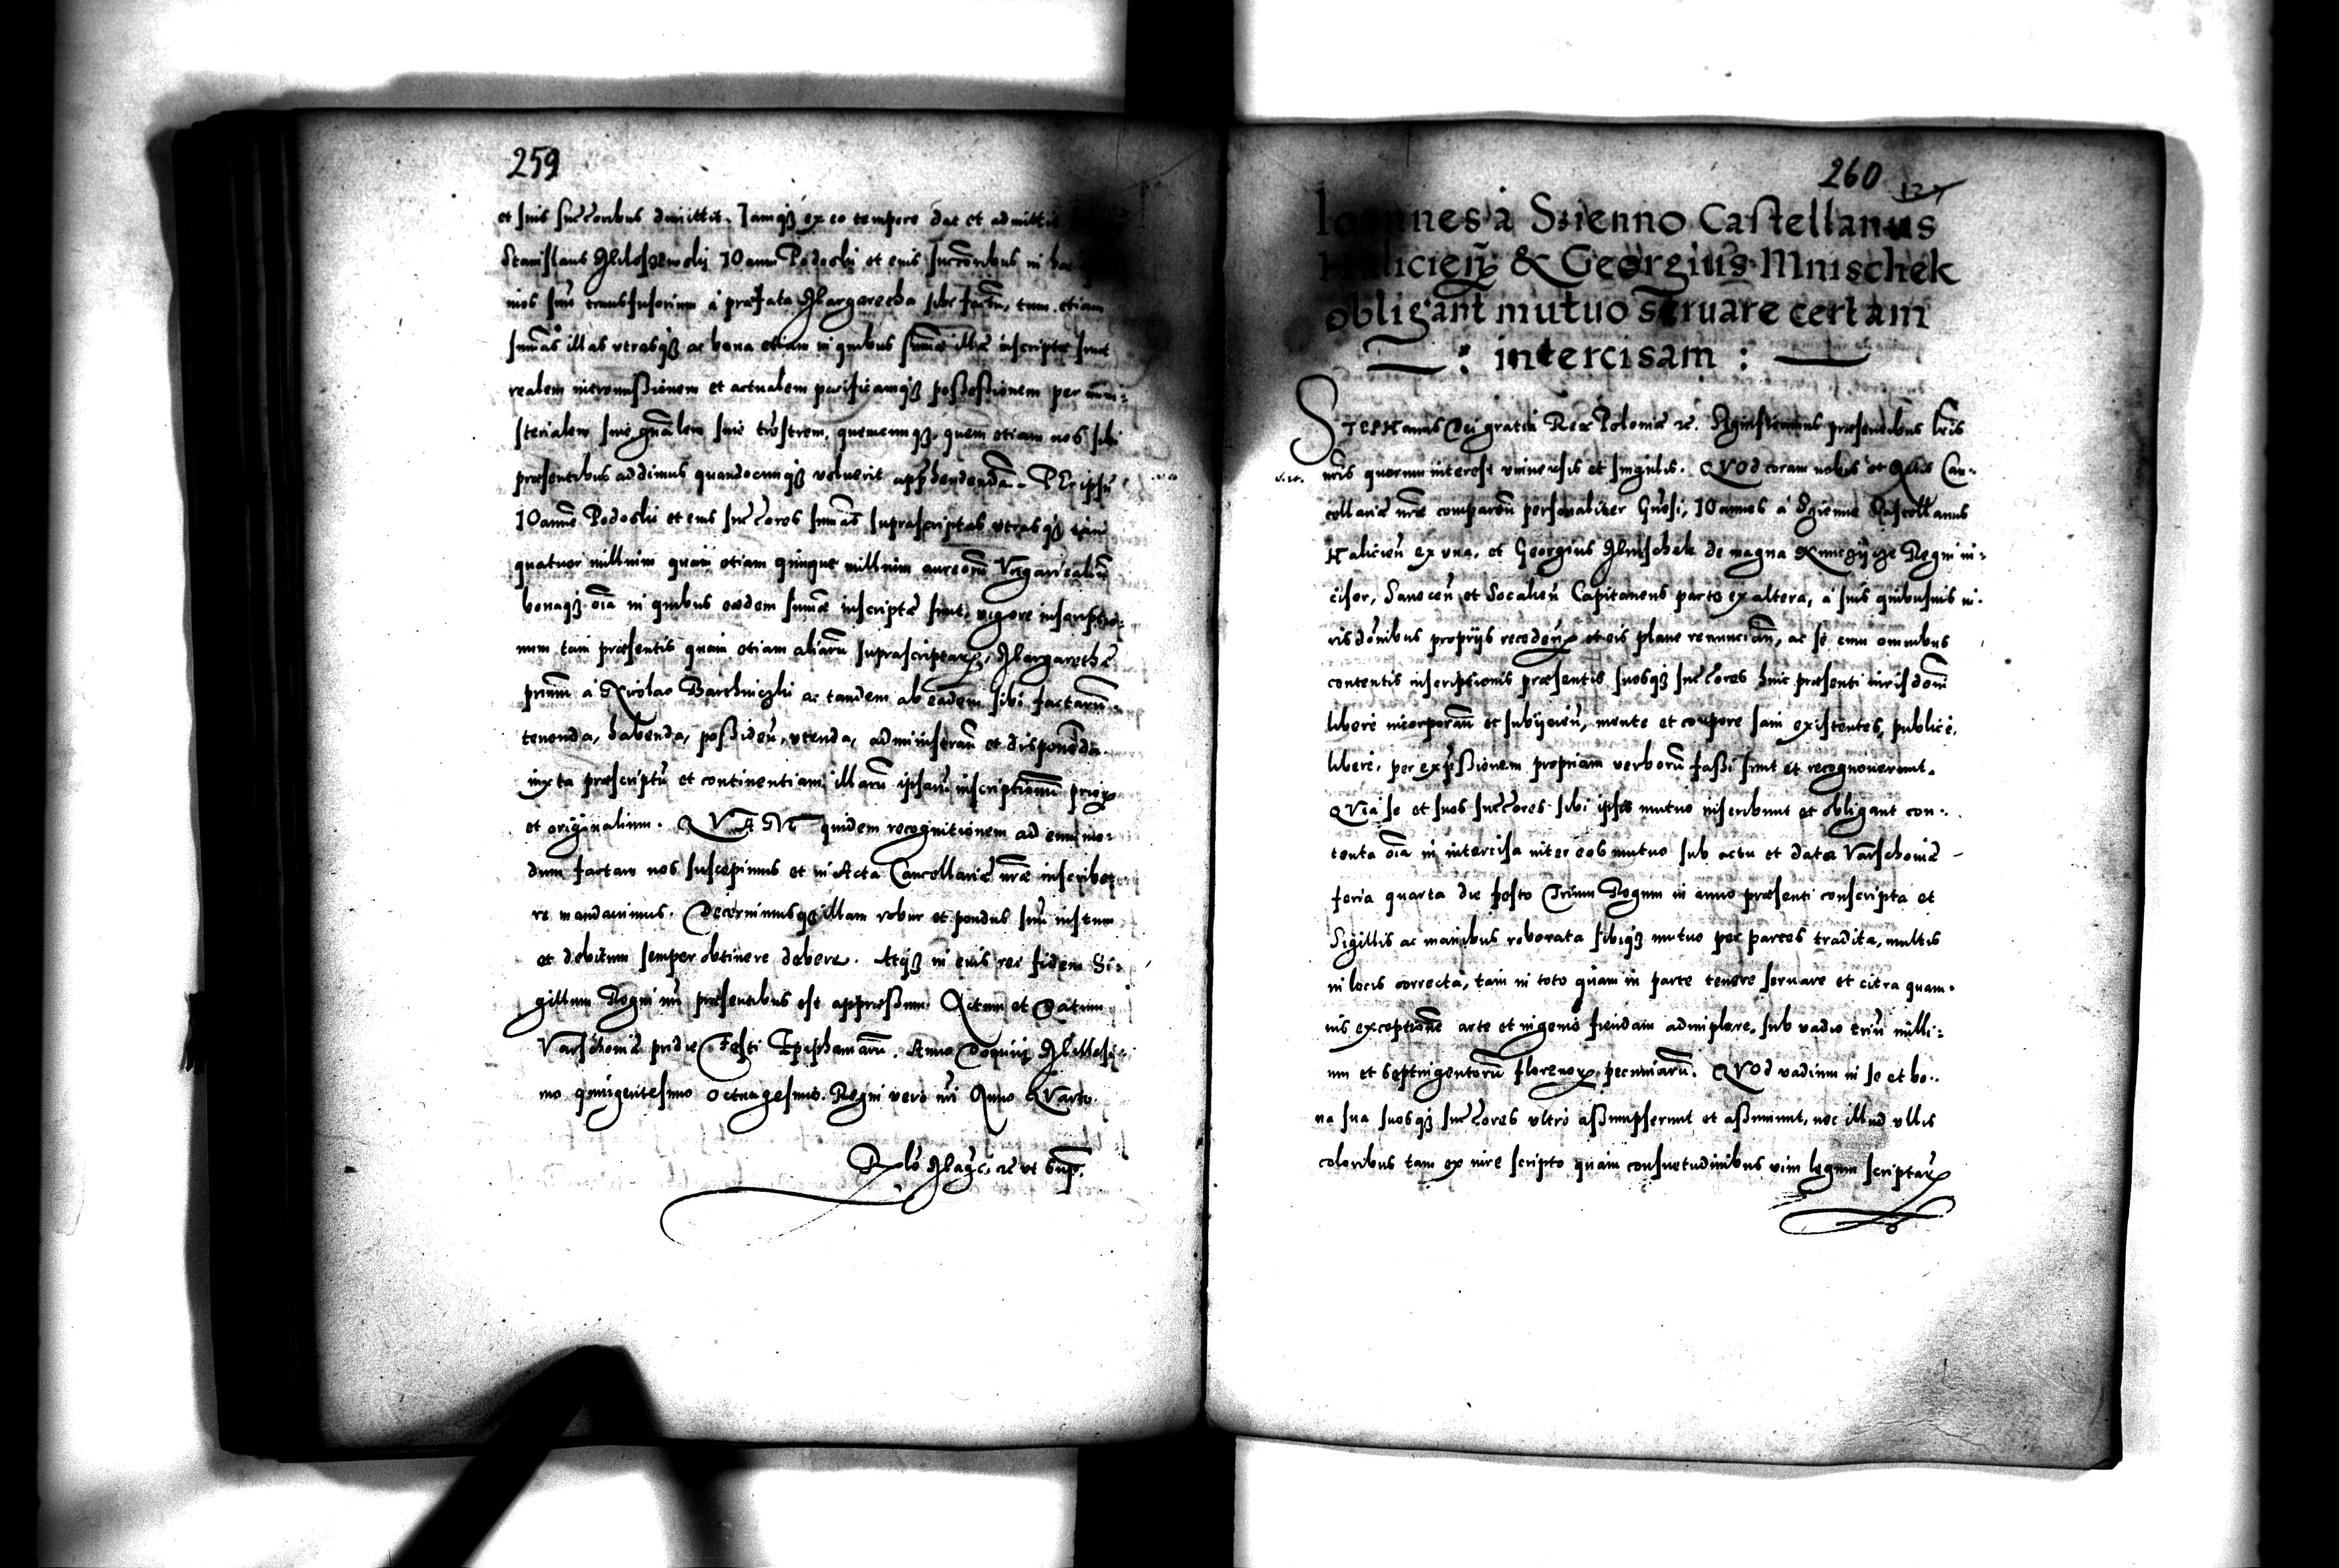 259
et suis successoribus dimittit. Iamq́ꝫ ex eo tempore dat et admittit
Stanislaus Miloszewski IOanni Podoski et eius successoribus in
suũ transfusorium à præfata Margaretha sibi factũ, tum etiam
sum̃as illas vtrasq́ꝫ ac bona etiam in quibus sum̃æ illæ inscriptæ sunt
realem intromißionem et actualem pacificamq́ꝫ poßeßionem per mini:
sterialem siue gñalem siue trrestrem, quemcunq́ꝫ, quem etiam nos sibi
præsentibus addimus quandocunq́ꝫ voluerit apphendendã. PEr ipsũ
IOannẽ Podoski et eius succores sum̃as suprascriptas vtrasq́ꝫ tam
quatuor millium quam etiam quinque millium aureorũ Vngaricaliũ
bonaq́ꝫ oĩa in quibus eædem sum̃æ inscriptæ sunt, vigore inscriptio:
num tam præsentis quam etiam aliarũ suprascriptaꝝ, Margarethæ
primũ à Nicolao Barthnizki ac tandem ab eadem sibi factarũ
tenenda, habenda, poßideñ, vtenda, administrañ et disponẽda
iuxta præscriptũ et continentiam illarũ ipsarũ inscriptionũ prioꝝ
et originalium. QVAM quidem recognitionem ad eum mo:
dum factam nos suscepimus et in Acta Cancellariæ nr̃æ inscribe:
re mandauimus. Decernimusq́ꝫ illam robur et pondus suũ iustum
et debitum semper obtinere debere. Atq́ꝫ in eius rei fidem Si:
gillum Regni nr̃i præsentibus est appreßum. Actum et Datum
Varschouiæ pridie Festi Epiphaniarũ. Anno Domini Millesi:
mo quingentesimo octuagesimo. Regni vero nr̃i Anno QVarto.
Rlo Mag. ꝛc vt sup.
260
127
Ioannes à Szienno Castellanus
Halicieñ & Georgius Mnischek
obligant mutuo seruare certam
: intercisam :
STEPHanus Dei gratia Rex Poloniæ ꝛc. Significamus præsentibus lr̃is
nr̃is quorum interest vniuersis et singulis. QVOd coram nobis et Actis Can:
cellariæ nr̃æ compareñ personaliter Gñosi, IOannes à Szienno Castellanus
Halicieñ ex vna, et Georgius Mnischek de magna Kunczycze Regni in:
cisor, Sanoceñ et Socalieñ Capitaneus parte ex altera, à suis quibusuis iu:
risdõnibus proprijs recedeñ et eis plane renunciañ, ac se cum omnibus
contentis inscriptionis præsentis suosq́ꝫ succores huic præsenti iurisdõni
liberè incorporañ et subijcieñ, mente et corpore sani existentes, publicè,
liberè, per expreßionem propriam verborũ faßi sunt et recognouerunt.
QVia se et suos succores sibi ipsis mutuo inscribunt et obligant con:
tenta oĩa in intercisa inter eos mutuo sub actu et data Varschouiæ
feria quarta die festo Trium Regum in anno præsenti conscripta et
Sigillis ac manibus roborata sibiq́ꝫ mutuo per partes tradita, multis
in locis correcta, tam in toto quam in parte tenere seruare et citra quam:
uis exceptionẽ arte et ingenio fiendam adimplere, sub vadio triũ milli:
um et septingentorũ florenoꝝ pecuniarũ. QVOd vadium in se et bo:
na sua suosq́ꝫ succores vltrò aßumpserunt et aßumunt, nec illud vllis
coloribus tam ex iure scripto quam consuetudinibus vim legum scriptaꝝ